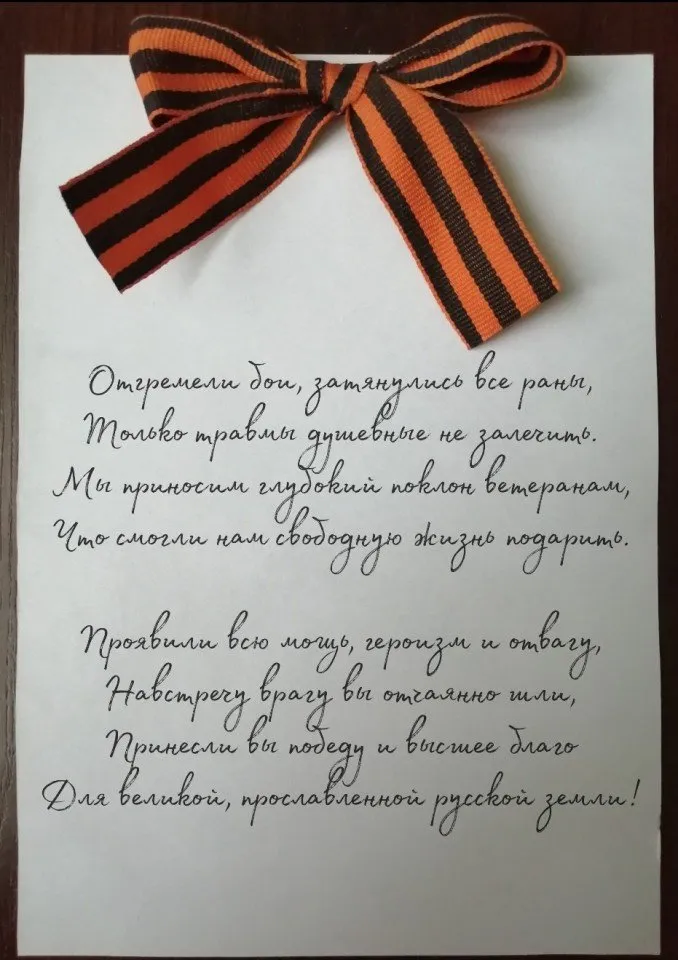 Отгремели бои, затянулись все раны,
Только травмы душевные не залечить.
Мы приносим глубокий поклон ветеранам,
Что смогли нам свободную жизнь подарить.
Проявили всю мощь, героизм и отвагу,
Навстречу врагу вы отчаянно шли,
Принесли вы победу и высшее благо
Для великой, прославленной русской земли!